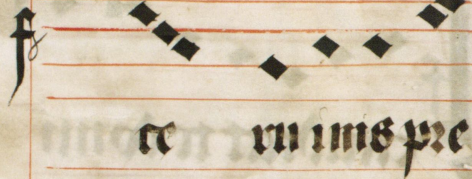 ce rn imis pre